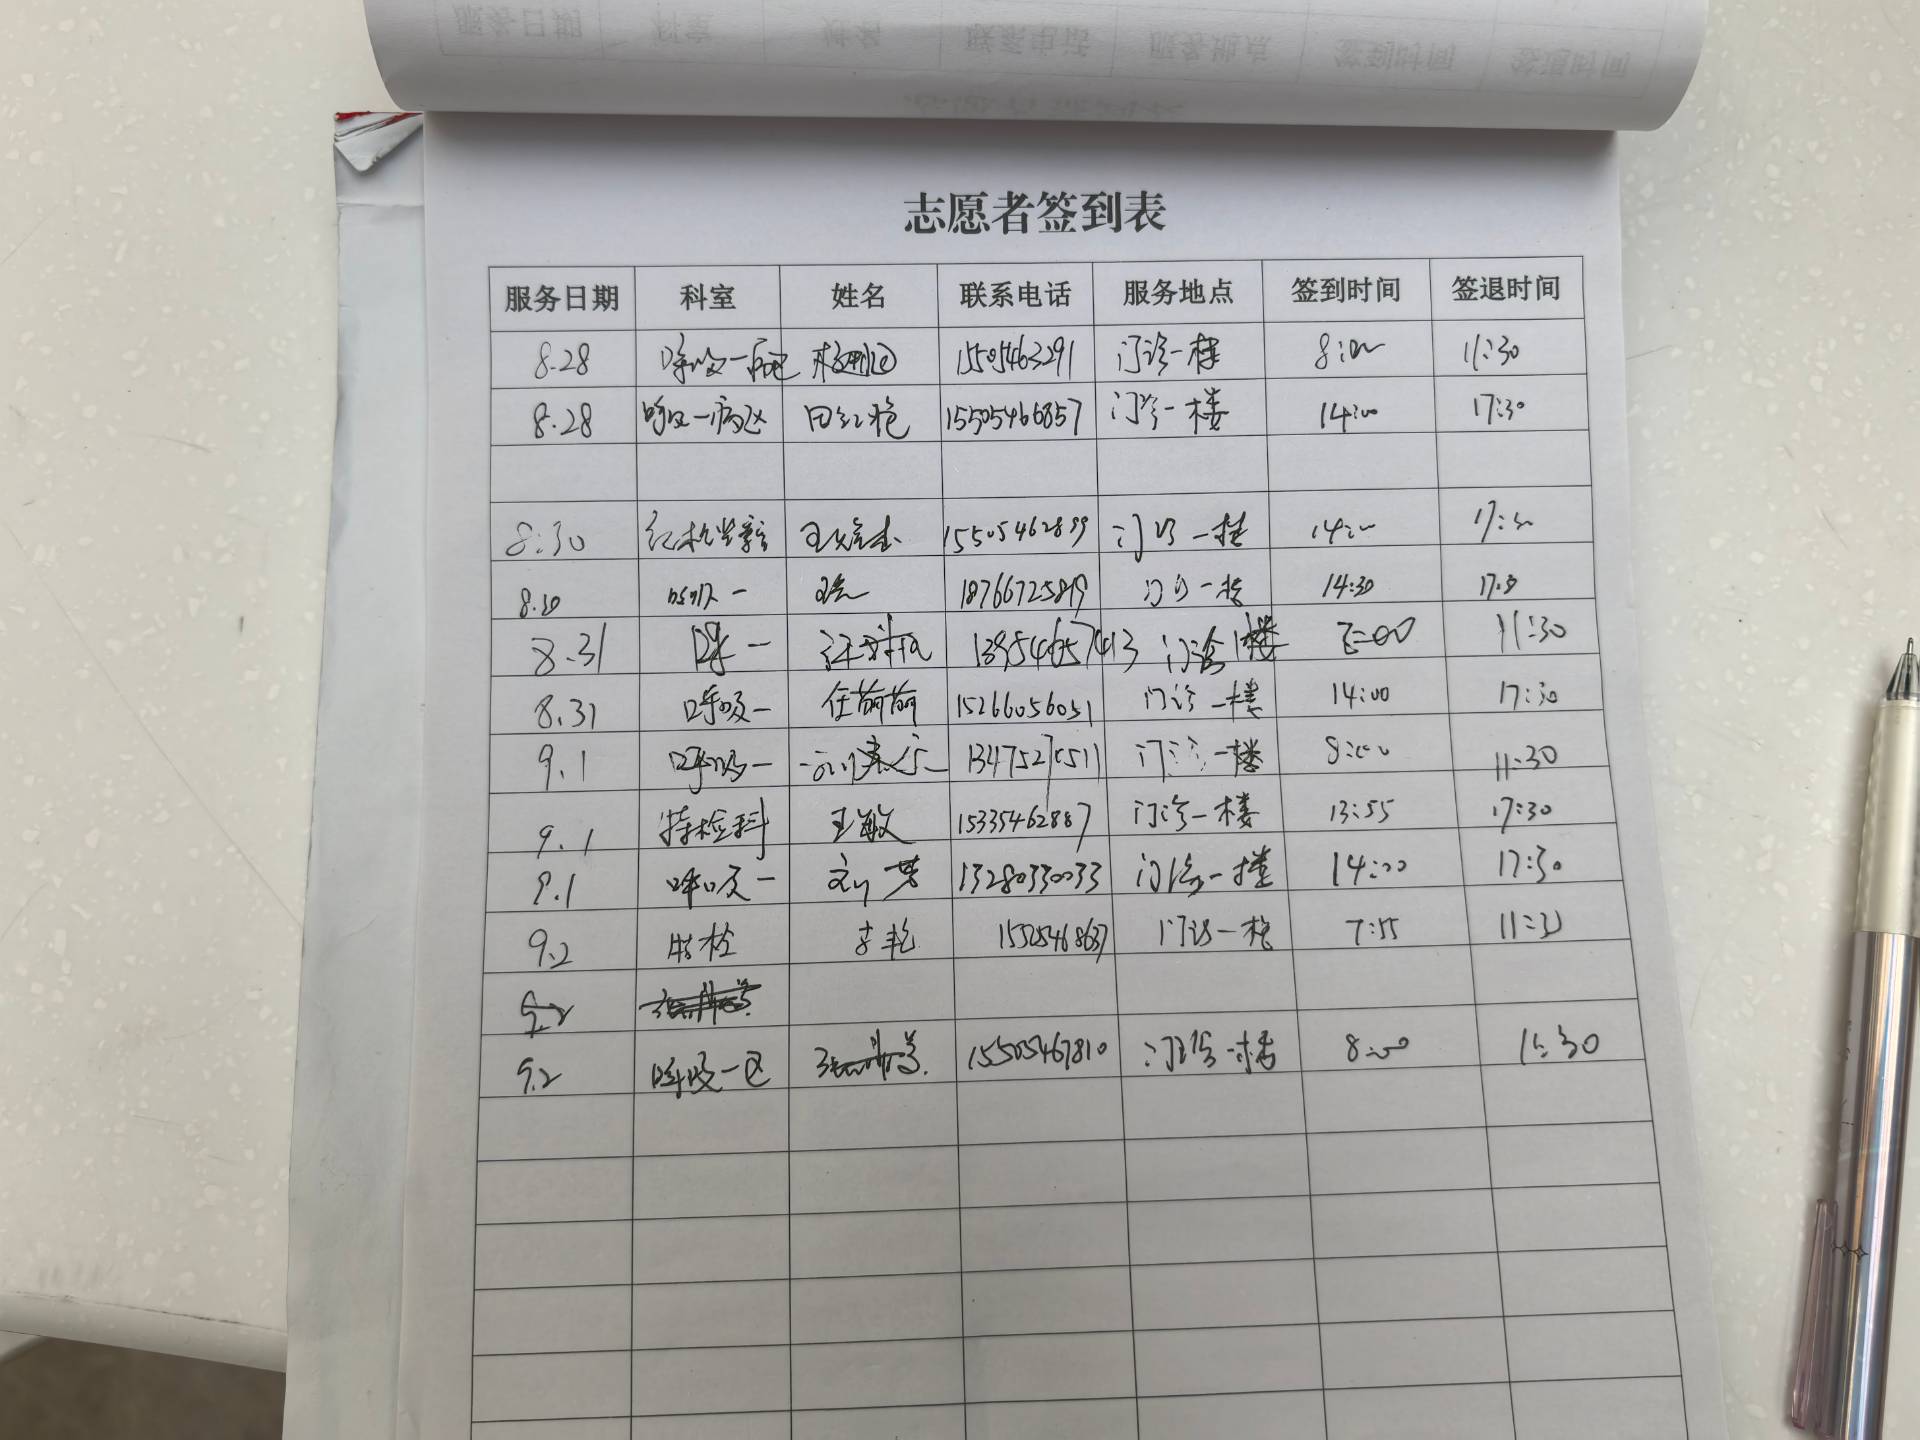 服务日期 科室 姓名 联系电话 服务地点 签到时间 签退时间
志愿者签到表
服务日期 科室 姓名 联系电话 服务地点 签到时间 签退时间
8.28 呼吸一病区 15505463291 门诊一楼 8:00 11:30
8.28 呼吸一病区 田红艳 15505466857 门诊一楼 14:00 17:30
8:30 15505462899 门诊一楼 14:00 17:30
8.30 呼吸一 18766725819 门诊一楼 14:30 17:30
8.31 呼一 13954657413 门诊1楼 11:30
8.31 呼吸一 任萌萌 15266056051 门诊一楼 14:00 17:30
9.1 呼吸一 门诊一楼 8:00 11:30
9.1 特检科 王敏 15335462887 门诊一楼 13:55 17:30
9.1 呼吸一 刘芳 13280330033 门诊一楼 14:00 17:30
9.2 特检 李艳 门诊一楼 7:55 11:30
9.2
9.2 呼吸一区 15505467810 门诊一楼 8:00 11:30